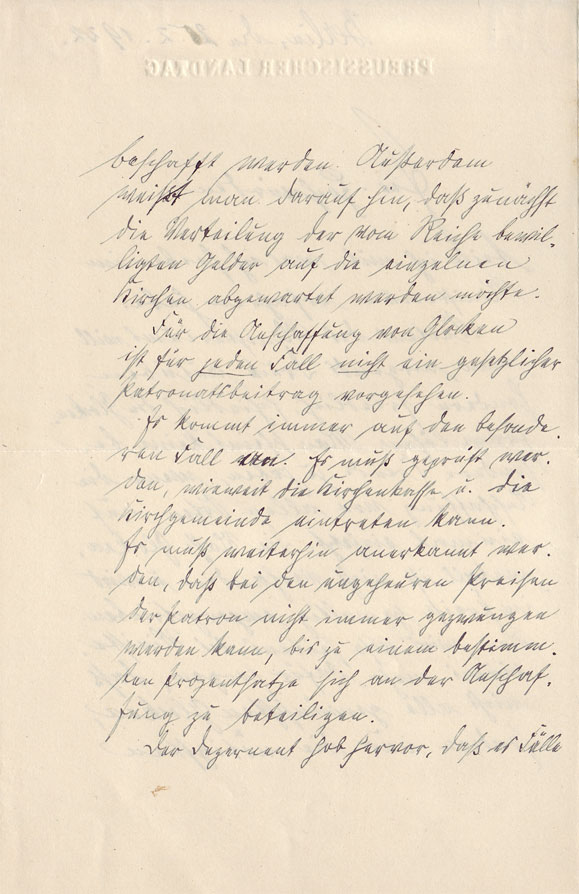 PREUSSISCHER LANDTAG
beschafft werden. Außerdem
weist man darauf hin, daß zunächst
die Verteilung der vom Reiche bewil-
ligten Gelder auf die einzelnen
Kirchen abgewartet werden möchte.
Für die Anschaffung von Glocken
ist für jeden Fall nicht ein gesetzlicher
Patronatsbeitrag vorgesehen.
Es kommt immer auf den besonde-
ren Fall an. Es muß geprüft wer-
den, wieweit die Kirchenkasse u. die
Kirchgemeinde eintreten kann.
Es muß weiterhin anerkannt wer-
den, daß bei den ungeheuren Preisen
der Patron nicht immer gezwungen
werden kann, bis zu einem bestimm-
ten Prozentsatze sich an der Anschaf-
fung zu beteiligen.
Der Dezernent hob hervor, daß es Fälle